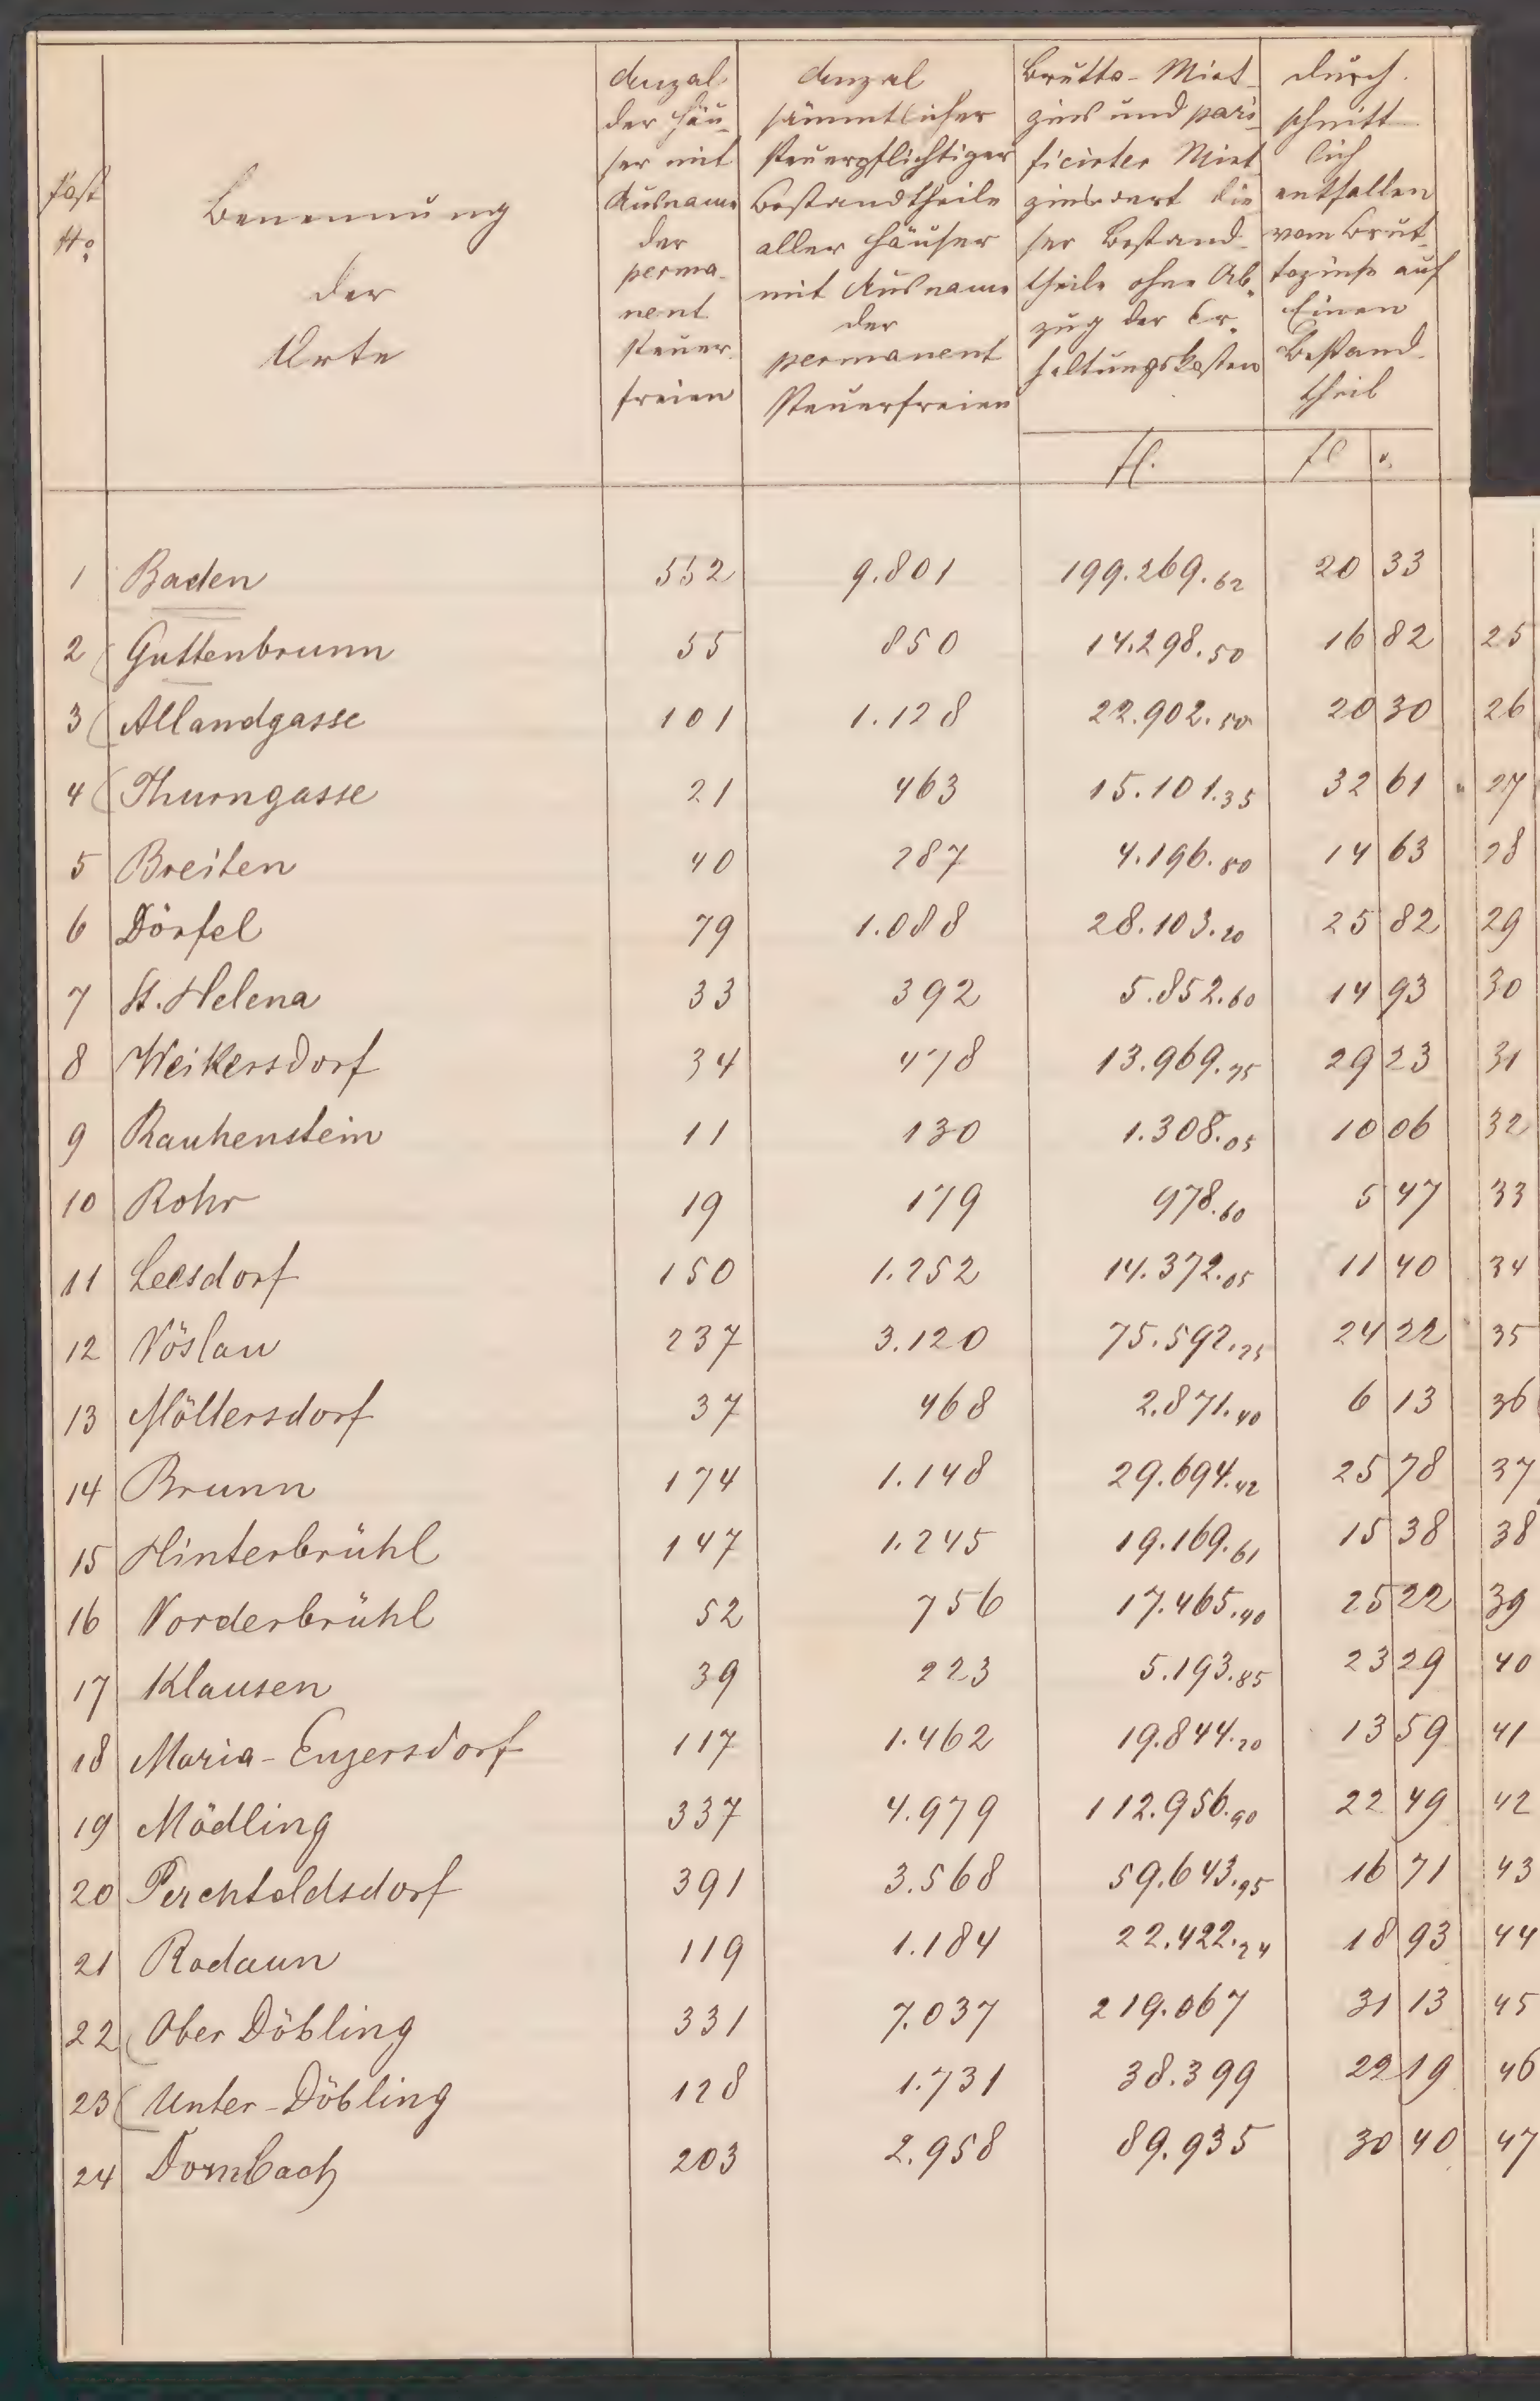 Post
No
Benennung
der
Orte
Anzal
der Häu-
ser mit
Ausname
der
perma-
nent
steuer-
freien
Anzal
sämmtlicher
steuerpflichtiger
Bestandtheile
aller Häuser
mit Ausname
der
permanent
steuerfreien
Brutto-Miet-
zins und pari-
ficirter Miet-
zinswert die-
ser Bestand-
theile ohne Ab-
zug der Er-
haltungskosten
fl.
durch-
schnitt-
lich
entfallen
vom Brut-
tozinse auf
Einen
Bestand-
theil
fl
1 Baden 552 9.801 199.269.62 20 33
2 Guttenbrunn 55 850 14.298.50 16 82 25
3 Allandgasse 101 1.128 22.902.50 20 30 26
4 Thurngasse 21 463 15.101.35 32 61 27
5 Breiten 40 287 4.196.80 14 63 28
6 Dörfel 79 1.088 28.103.20 25 82 29
7 St. Helena 33 392 5.852.60 14 93 30
8 Weikersdorf 34 478 13.969.75 29 23 31
9 Rauhenstein 11 130 1.308.05 10 06 32
10 Rohr 19 179 978.60 5 47 33
11 Leesdorf 150 1.252 14.372.05 11 40 34
12 Vöslau 237 3.120 75.592.25 24 22 35
13 Möllersdorf 37 468 2.871.40 6 13 36
14 Brunn 174 1.148 29.694.42 25 78 37
15 Hinterbrühl 147 1.245 19.169.61 15 38 38
16 Vorderbrühl 52 756 17.465.40 25 22 39
17 Klausen 39 223 5.193.85 23 29 40
18 Maria-Enzersdorf 117 1.462 19.844.20 13 59 41
19 Mödling 337 4.979 112.956.90 22 49 42
20 Perchtoldsdorf 391 3.568 59.643.95 16 71 43
21 Rodaun 119 1.184 22.422.24 18 93 44
22 Ober Döbling 331 7.037 219.067 31 13 45
23 Unter-Döbling 128 1.731 38.399 22 19 46
24 Dornbach 203 2.958 89.935 30 40 47